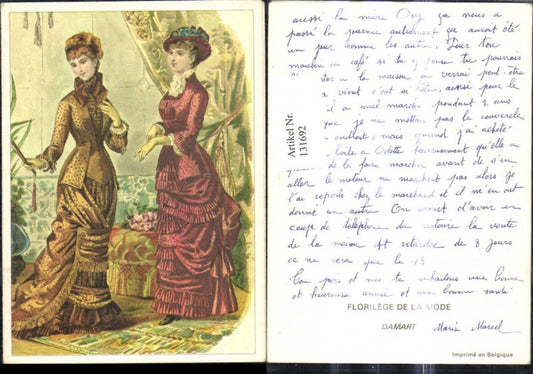 aussi la mère Ovy ça nous a
passé la journée autrement ça aurait été
un jour comme les autres. Pour ton
moulin à café si tu y penses tu pourrais
à la maison on verrai peut-être
a vient c'est ai pour le
il a mal marché pendant 2 ans
que je ne mettais pas le couvercle
endroit, mais quand j'ai acheté
boîte à Odette heureusement qu'elle a
de le faire marcher avant de s'en
aller le moteur ne marchait pas alors je
l'ai reporté chez le marchand et il m'en ont
donné un autre. On vient d'avoir un
coup de téléphone du notaire la vente
de la maison est retardée de 8 jours
ce ne sera que le 13
Ton père et moi te souhaitons une bonne
et heureuse année et une bonne santé
FLORILÈGE DE LA MODE
DAMART Marie Marcel
Imprimé en Belgique
Artikel Nr.
131692